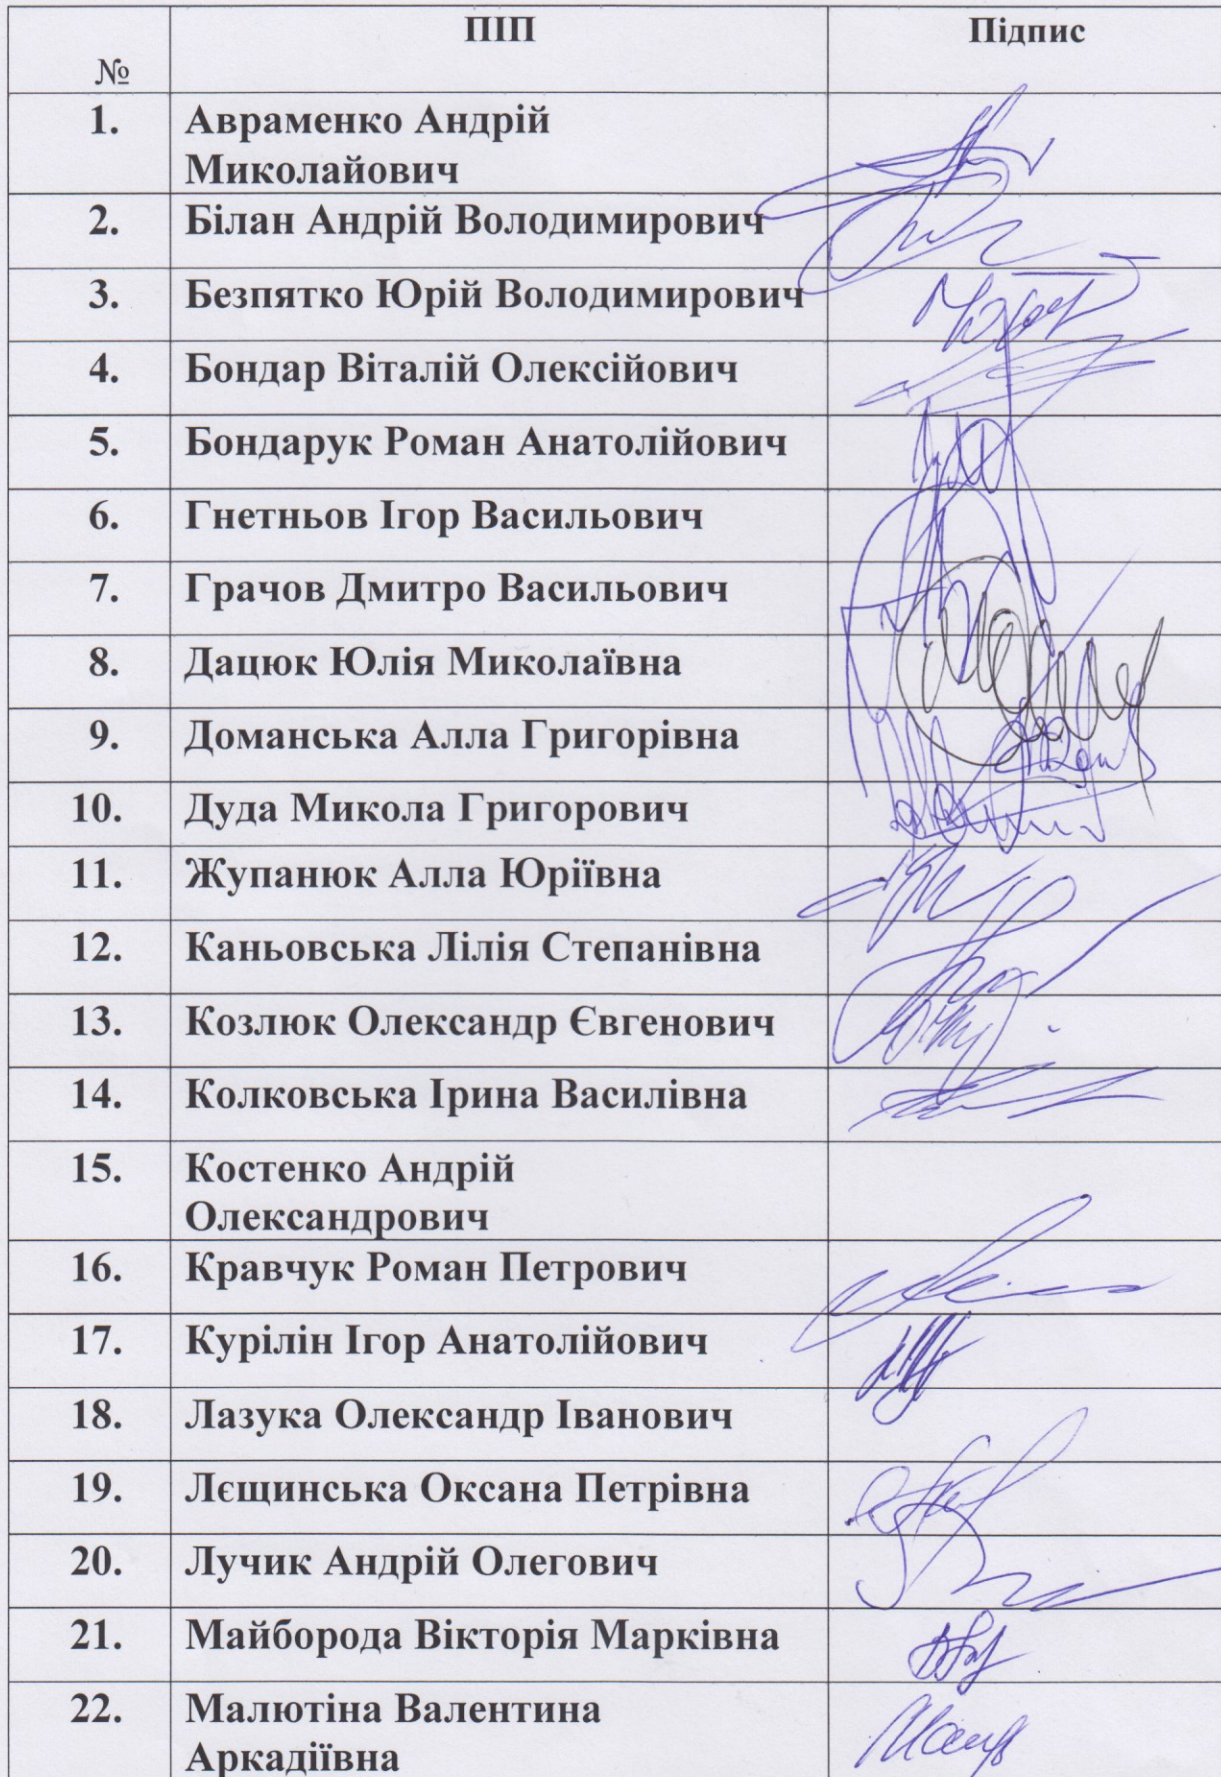 ПІП
Підпис
№
1. Авраменко Андрій
Миколайович
2. Білан Андрій Володимирович
3. Безпятко Юрій Володимирович
4. Бондар Віталій Олексійович
5. Бондарук Роман Анатолійович
6. Гнетньов Ігор Васильович
7. Грачов Дмитро Васильович
8. Дацюк Юлія Миколаївна
9. Доманська Алла Григорівна
10. Дуда Микола Григорович
11. Жупанюк Алла Юріївна
12. Каньовська Лілія Степанівна
13. Козлюк Олександр Євгенович
14. Колковська Ірина Василівна
15. Костенко Андрій
Олександрович
16. Кравчук Роман Петрович
17. Курілін Ігор Анатолійович
18. Лазука Олександр Іванович
19. Лєщинська Оксана Петрівна
20. Лучик Андрій Олегович
21. Майборода Вікторія Марківна
22. Малютіна Валентина
Аркадіївна